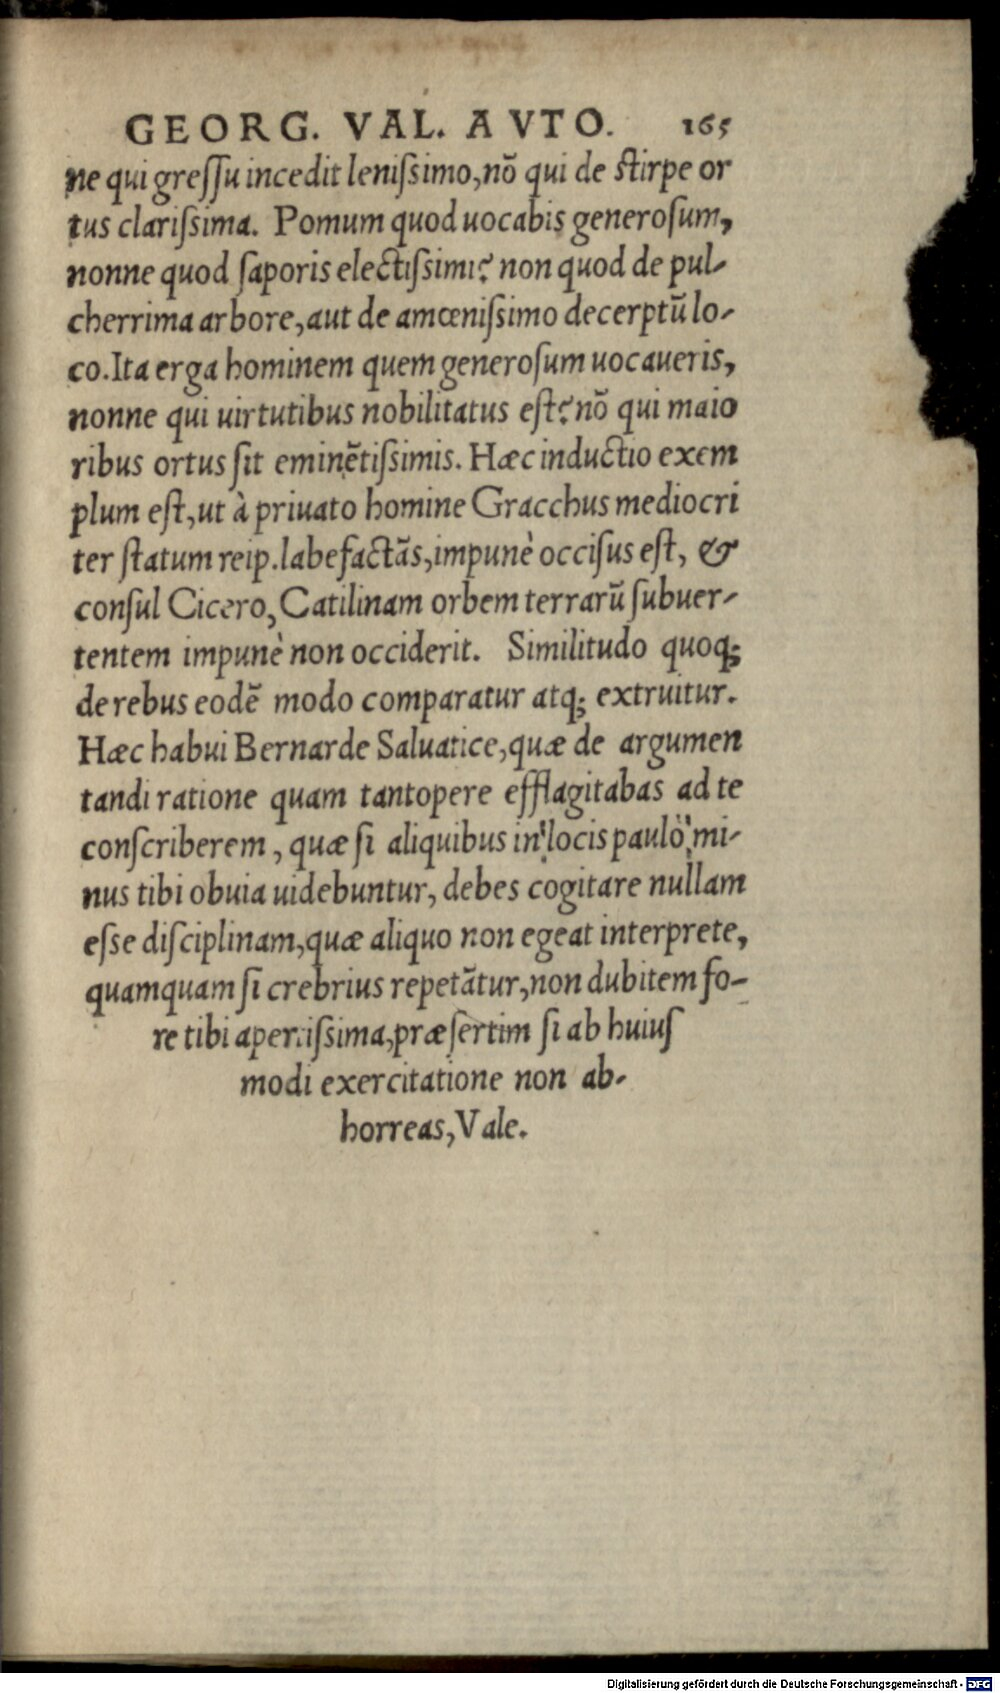 GEORG. VAL. AVTO. 165
ne qui greſſu incedit leniſsimo, nõ qui de ſtirpe or
tus clariſsima. Pomum quod uocabis generoſum,
nonne quod ſaporis electiſsimi? non quod de pul-
cherrima arbore, aut de amœniſsimo decerptũ lo-
co. Ita erga hominem quem generoſum uocaueris,
nonne qui uirtutibus nobilitatus eſt? nõ qui maio
ribus ortus ſit eminẽtiſsimis. Hæc inductio exem
plum eſt, ut à priuato homine Gracchus mediocri
ter ſtatum reip. labefactãs, impunè occiſus eſt, &
conſul Cicero, Catilinam orbem terrarũ ſubuer-
tentem impunè non occiderit. Similitudo quoq;
de rebus eodẽ modo comparatur atq; extruitur.
Hæc habui Bernarde Saluatice, quæ de argumen
tandi ratione quam tantopere efflagitabas ad te
conſcriberem, quæ ſi aliquibus in locis paulò mi-
nus tibi obuia uidebuntur, debes cogitare nullam
eſse diſciplinam, quæ aliquo non egeat interprete,
quamquam ſi crebrius repetãtur, non dubitem fo-
re tibi apertiſsima, præſertim ſi ab huiuſ
modi exercitatione non ab-
horreas, Vale.
Digitalisierung gefördert durch die Deutsche Forschungsgemeinschaft - DFG